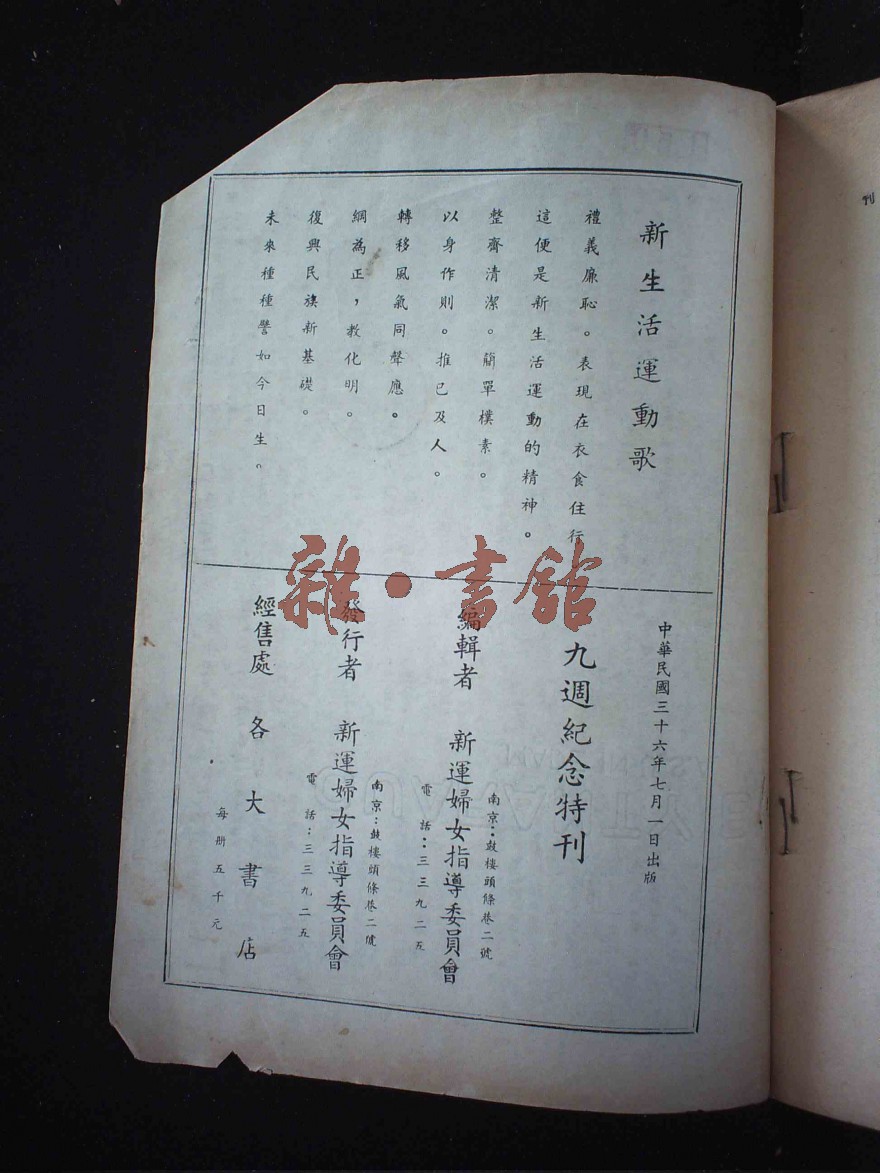 新生活運動歌
禮義廉恥。表現在衣食住行
這便是新生活運動的精神。
整齊清潔。簡單樸素。
以身作則。推己及人。
轉移風氣同聲應。
綱為正,教化明。
復興民族新基礎。
未來種種譬如今日生。
中華民國三十六年七月一日出版
九週紀念特刊
編輯者 新運婦女指導委員會
南京:鼓樓頭條巷二號
電話:三三九二五
發行者 新運婦女指導委員會
南京:鼓樓頭條巷二號
電話:三三九二五
經售處 各大書店
每册五千元
雜·書館
刊